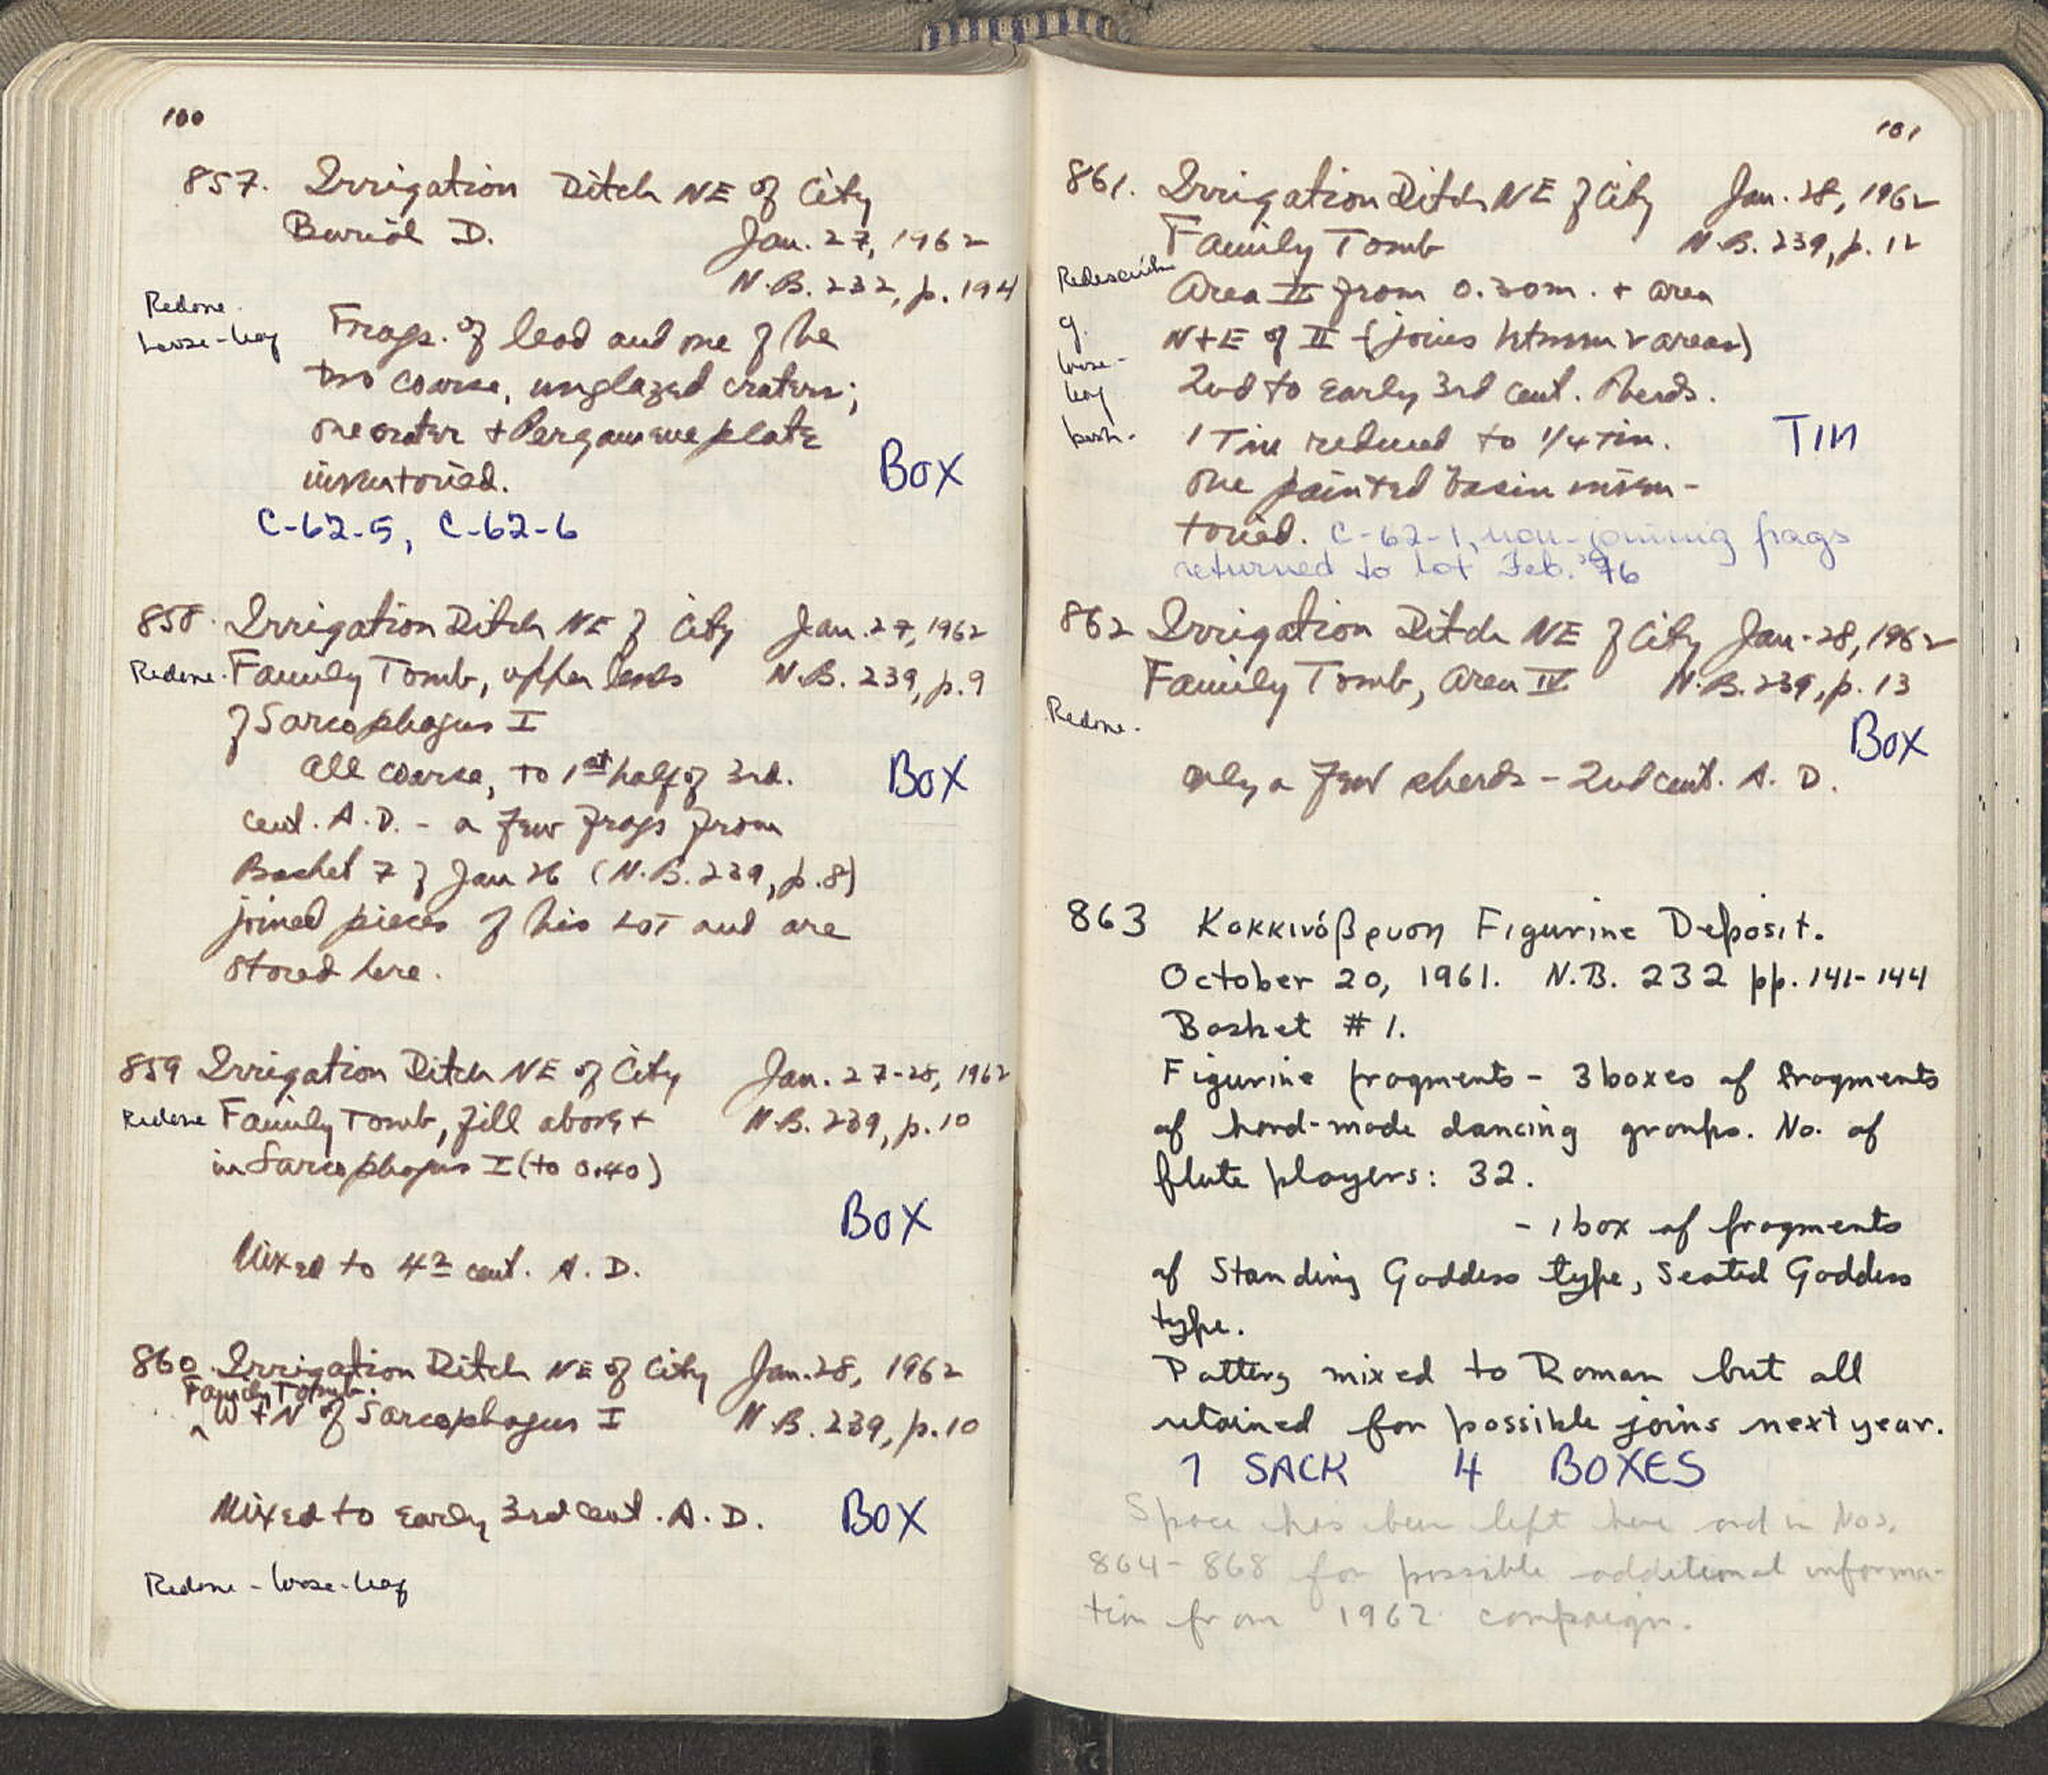 100
857. Irrigation Ditch NE of City
Burial D. Jan. 27, 1962
N.B. 232, p. 194
Redone
loose-leaf
Frags. of lead and one of the
two coarse, unglazed craters;
one crater + Pergamene plate
inventoried. BOX
C-62-5, C-62-6
858. Irrigation Ditch NE of City Jan. 27, 1962
Redone. Family Tomb, upper levels N.B. 239, p. 9
of Sarcophagus I
All coarse, to 1st half of 3rd. BOX
cent. A.D. - a few frags from
Basket 7 of Jan 26 (N.B. 239, p. 8)
joined pieces of this LOT and are
stored here.
859 Irrigation Ditch NE of City Jan. 27-28, 1962
Redone Family Tomb, fill above + N.B. 239, p. 10
in Sarcophagus I (to 0.40)
BOX
Mixed to 4th cent. A.D.
860. Irrigation Ditch NE of City Jan. 28, 1962
Family Tomb.
^ W + N of Sarcophagus I N.B. 239, p. 10
Mixed to early 3rd cent. A.D. BOX
Redone - loose-leaf
101
861. Irrigation Ditch NE of City Jan. 28, 1962
Family Tomb N.B. 239, p. 12
Area II from 0.30m. + area
N+E of II (joins areas)
2nd to early 3rd cent. sherds.
1 Tin reduced to 1/4 tin. TIN
loose-
leaf
One painted basin inven-
toried. C-62-1, non-joining frags
returned to lot Feb. '76
862 Irrigation Ditch NE of City Jan. 28, 1962
Family Tomb, Area IV N.B. 239, p. 13
Redone. BOX
only a few sherds - 2nd cent. A.D.
863 Κοκκινόβρυση Figurine Deposit.
October 20, 1961. N.B. 232 pp. 141-144
Basket #1.
Figurine fragments - 3 boxes of fragments
of hand-made dancing groups. No. of
flute players: 32.
- 1 box of fragments
of Standing Goddess type, Seated Goddess
type.
Pottery mixed to Roman but all
retained for possible joins next year.
1 SACK 4 BOXES
Space has been left here and in Nos.
864-868 for possible additional informa-
tion from 1962 campaign.